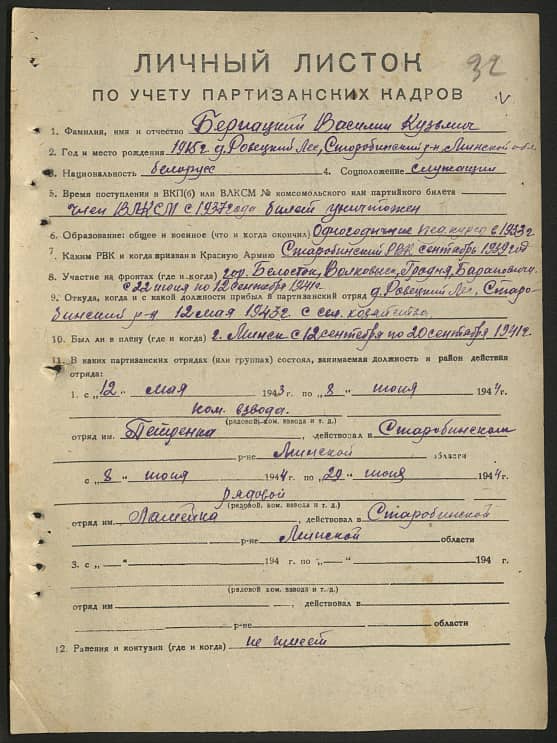 32
ЛИЧНЫЙ ЛИСТОК
ПО УЧЕТУ ПАРТИЗАНСКИХ КАДРОВ
1. Фамилия, имя и отчество Бернацкий Василий Кузьмич
2. Год и место рождения 1915г д. Ровецкий Лес, Старобинский р-н Минской обл.
3. Национальность белорус 4. Соцположение служащий
5. Время поступления в ВКП(б) или ВЛКСМ № комсомольского или партийного билета
член ВЛКСМ с 1937 года билет уничтожен
6. Образование: общее и военное (что и когда окончил) Одногодичные курсы в 1933г.
7. Каким РВК и когда призван в Красную Армию Старобинский РВК сентябрь 1939 год
8. Участие на фронтах (где и когда) гор. Белосток, Волковыск, Гродня, Барановичи
с 22 июня по 12 сентября 1941г.
9. Откуда, когда и с какой должности прибыл в партизанский отряд д. Ровецкий Лес, Старо-
бинский р-н 12 мая 1943г с сел. хозяйства
10. Был ли в плену (где и когда) г. Минск с 12 сентября по 20 сентября 1941г.
11. В каких партизанских отрядах (или группах) состоял, занимаемая должность и район действия
отряда:
1. с „12" мая 1943 г. по „8" июня 1944 г.
ком. взвода.
(рядовой, ком. взвода и т. д.)
отряд им. , действовал в Старобинском
р-не Минской области
с „8" июня 1944 г. по „29" июня 1944 г.
рядовой
(рядовой, ком. взвода и т. д.)
отряд им. , действовал в Старобинской
р-не Минской области
3. с „ " 194 г. по „ " 194 г.
(рядовой ком. взвода и т. д.)
отряд им , действовал в
р-не области
12. Ранения и контузии (где и когда) не имеет